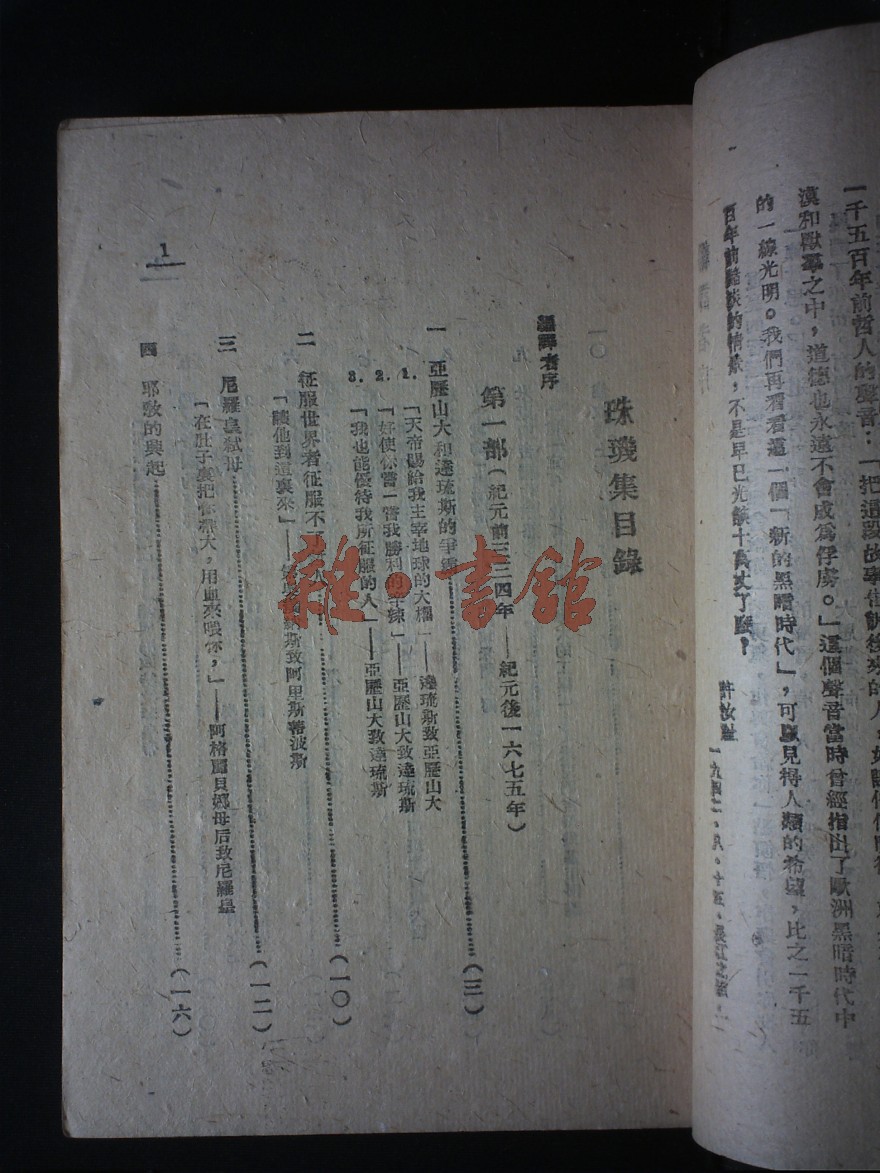 一千五百年前哲人的聲音：「把這段故事
漠和獸羣之中，道德也永遠不會成爲俘虜。」這個聲音當時曾經指出了歐洲黑暗時代中
的一線光明。我們再看看這一個「新的黑暗時代」，可以見得人類的希望，比之一千五
百年前黯淡的情景，不是早已光餘十萬丈了麼？
許汝祉
珠璣集目錄
編譯者序
第一部（紀元前三三四年——紀元後一六七五年）
一 亞歷山大和達琉斯的爭霸（三）
1.「天帝賜給我主宰地球的大權」——達琉斯致亞歷山大
2.「好使你嘗一嘗我勝利的辛辣」——亞歷山大致達琉斯
3.「我也能優待我所征服的人」——亞歷山大致達琉斯
二 征服世界者征服不了人（一〇）
「讓他到這裏來」——致阿里斯蒂波斯
三 尼羅皇弑母（一二）
「在肚子裏把你漂大，用血來喂你，」——阿格麗貝娜母后致尼羅皇
四 耶教的興起（一六）
1
雜書館